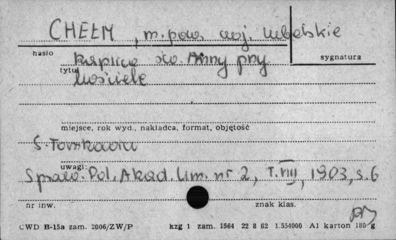 CHEŁM, m. pow. woj. lubelskie
hasło
sygnatura
kaplica św. Anny przy
tytuł
kościele
miejsce, rok wyd., nakładca, format, objętość
S. Tomkowicz
uwagi:
Spraw. Pol. Akad. Um. nr 2, T. VIII, 1903, s. 6
nr inw.
znak klas.
CWD B-15a zam. 2006/ZW/P
kzg 1 zam. 1564 22 8 62 1.554000 A1 karton 180 g